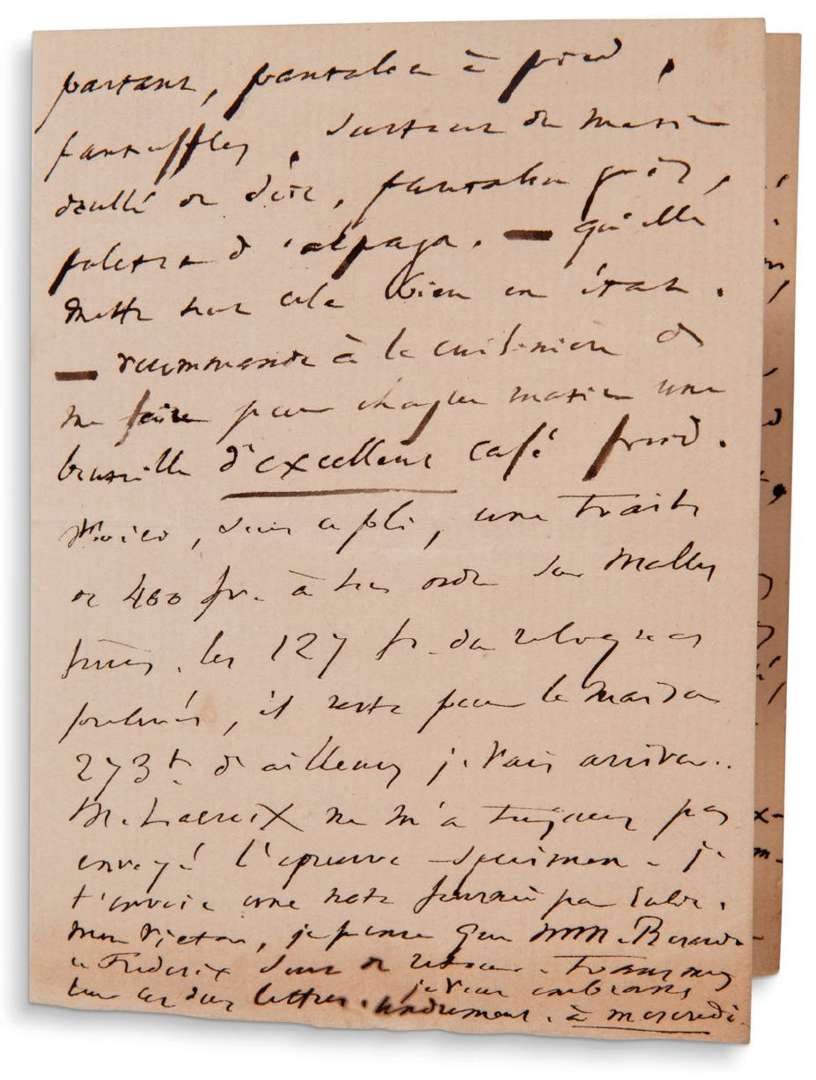 partout, pantalon à pied,
pantouffles, surtout du matin
doublé de soie, pantalon gris,
paletot d'alpaga. — qu'elle
mette tout cela bien en état.
— recommande à la cuisinière de
me faire pour chaque matin une
bouteille d'excellent café froid.
Voici, sous ce pli, une traite
de 400 fr. à ton ordre sur Mallet
frères. les 127 fr. du
prélevés, il reste pour la maison
273 f. d'ailleurs je vais arriver..
M. Lacroix ne m'a toujours pas
envoyé l'épreuve-spécimen. je
t'envoie une note fournie par
mon Victor, je pense que MM. Berardi
et Frédérix sont de retour. Transmets
leur ces deux lettres. je vous embrasse
tendrement. à mercredi.